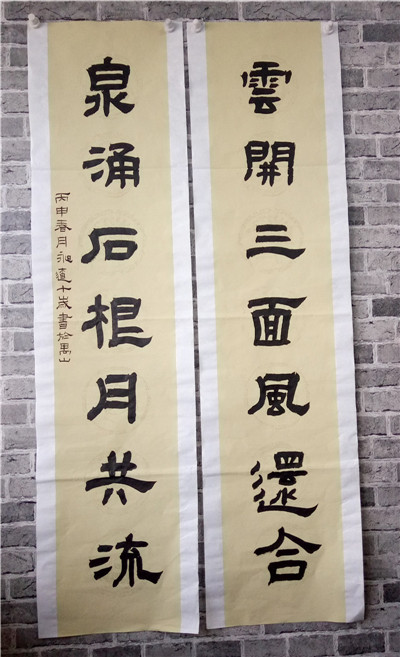 雲開三面風還合
泉涌石根月共流
丙申春月沁遠十歲書於禹山